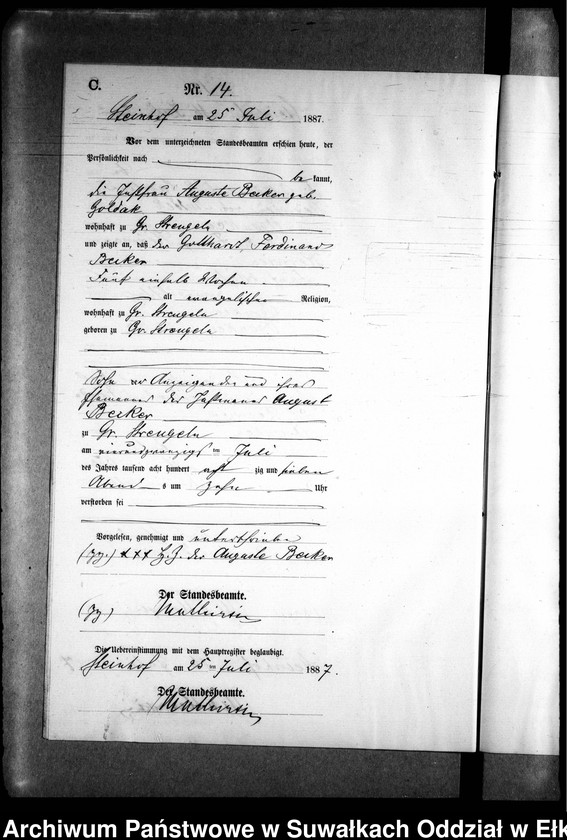 C.
Nr. 14.
Steinhof am 25ten Juli 1887.
Vor dem unterzeichneten Standesbeamten erschien heute, der
Persönlichkeit nach
be kannt,
die Instfrau Auguste Becker geb.
Goldak
wohnhaft zu Gr. Strengeln
und zeigte an, daß der Gotthard, Ferdinand
Becker
Fünf einhalb Wochen
alt evangelischer Religion,
wohnhaft zu Gr. Strengeln
geboren zu Gr. Strengeln
Sohn der Anzeigenden und ihres
Ehemannes des Instmannes August
Becker
zu Gr. Strengeln
am vierundzwanzigsten Juli
des Jahres tausend acht hundert acht zig und sieben
Abend s um Zehn Uhr
verstorben sei
Vorgelesen, genehmigt und unterschrieben
(gg.) +++ H. Z. der Auguste Becker
Der Standesbeamte.
(gg)
Die Uebereinstimmung mit dem Hauptregister beglaubigt.
Steinhof am 25ten Juli 1887.
Der Standesbeamte.
Archiwum Państwowe w Suwałkach Oddział w Ełk